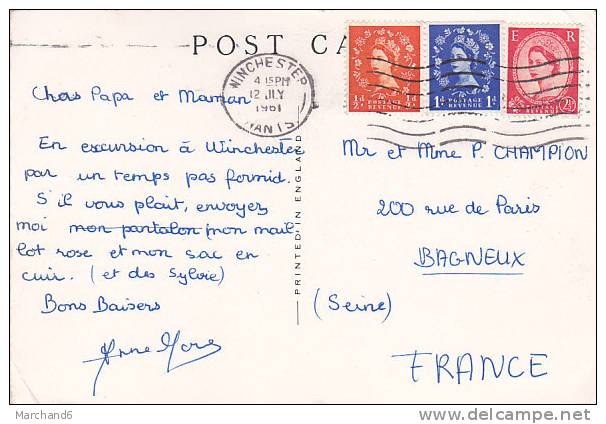 POST CA
WINCHESTER
4 15PM
12 JLY
1961
HANTS
½d ½d
POSTAGE
REVENUE
1d 1d
POSTAGE
REVENUE
E R
2½d
Chers Papa et Maman
En excursion à Winchester
par un temps pas formid.
S'il vous plait, envoyez
moi mon pantalon (mon mail-
lot rose et mon sac en
cuir. (et des Sylvie)
Bons Baisers
Anne Marie
PRINTED IN ENGLAND
Mr et Mme P. CHAMPION
200 rue de Paris
BAGNEUX
(Seine)
FRANCE
Marchand6
www.delcampe.net